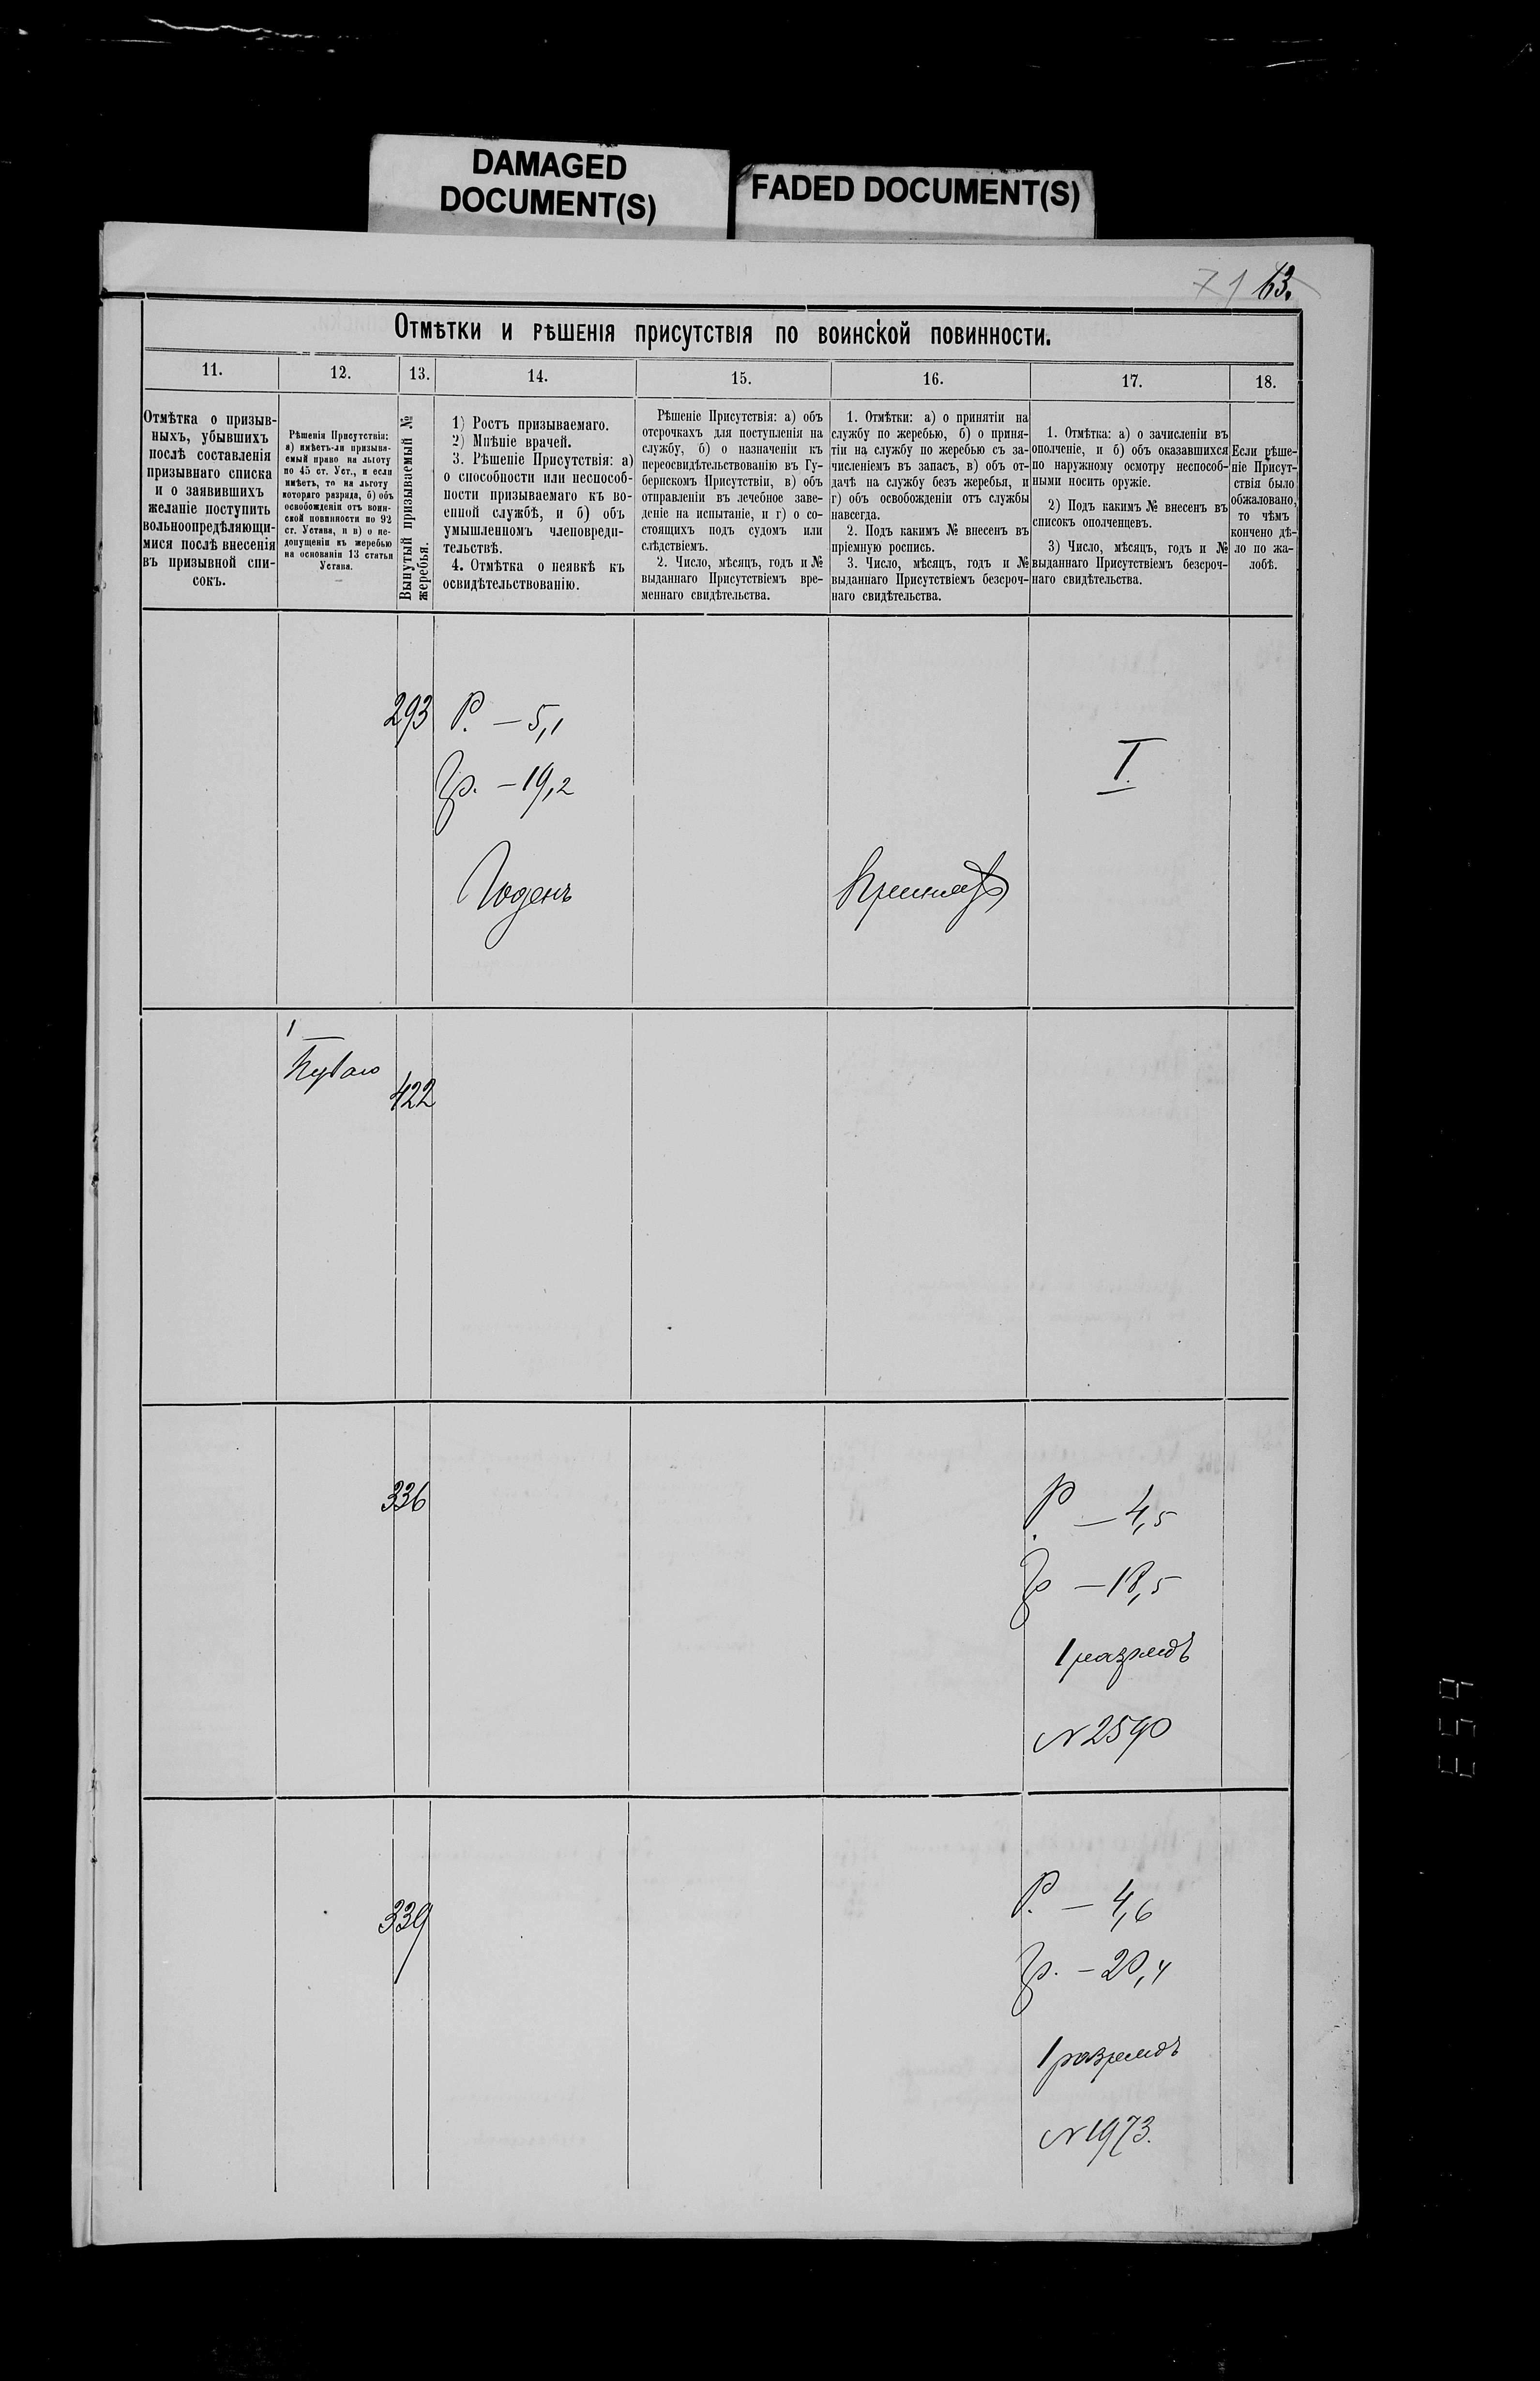 DAMAGED
DOCUMENT(S)
FADED DOCUMENT(S)
71 63.
Отмѣтки и рѣшенія присутствія по воинской повинности.
11. 12. 13. 14. 15. 16. 17. 18.
Отмѣтка о призыв-
ныхъ, убывшихъ
послѣ составленія
призывнаго списка
и о заявившихъ
желаніе поступить
вольноопредѣляющи-
мися послѣ внесенія
въ призывной спи-
сокъ.
Рѣшенія Присутствія:
а) имѣетъ-ли призыва-
емый право на льготу
по 45 ст. Уст., и если
имѣетъ, то на льготу
котораго разряда, б) объ
освобожденіи отъ воин-
ской повинности по 92
ст. Устава, и в) о не-
допущеніи къ жеребью
на основаніи 13 статьи
Устава.
Вынутый призываемый №
жеребья.
1) Ростъ призываемаго.
2) Мнѣніе врачей.
3. Рѣшеніе Присутствія: а)
о способности или неспособ-
ности призываемаго къ во-
енной службѣ, и б) объ
умышленномъ членовреди-
тельствѣ.
4. Отмѣтка о неявкѣ къ
освидѣтельствованію.
Рѣшеніе Присутствія: а) объ
отсрочкахъ для поступленія на
службу, б) о назначеніи къ
переосвидѣтельствованію въ Гу-
бернскомъ Присутствіи, в) объ
отправленіи въ лечебное заве-
деніе на испытаніе, и г) о со-
стоящихъ подъ судомъ или
слѣдствіемъ.
2. Число, мѣсяцъ, годъ и №
выданнаго Присутствіемъ вре-
меннаго свидѣтельства.
1. Отмѣтки: а) о принятіи на
службу по жеребью, б) о приня-
тіи на службу по жеребью съ за-
численіемъ въ запасъ, в) объ от-
дачѣ на службу безъ жеребья, и
г) объ освобожденіи отъ службы
навсегда.
2. Подъ какимъ № внесенъ въ
пріемную роспись.
3. Число, мѣсяцъ, годъ и №
выданнаго Присутствіемъ безсроч-
наго свидѣтельства.
1. Отмѣтка: а) о зачисленіи въ
ополченіе, и б) объ оказавшихся
по наружному осмотру неспособ-
ными носить оружіе.
2) Подъ какимъ № внесенъ въ
списокъ ополченцевъ.
3) Число, мѣсяцъ, годъ и №
выданнаго Присутствіемъ безсроч-
наго свидѣтельства.
Если рѣше-
ніе Присут-
ствія было
обжаловано,
то чѣмъ
кончено дѣ-
ло по жа-
лобѣ.
293 Р. — 5,1
Гр. — 19,2
I
Годенъ
1
422
336
Р. — 4,5
Гр — 18,5
1 разрядъ
N 2590
339
Р. — 4,6
Гр. — 20,4
1 разрядъ
N 1973.
659